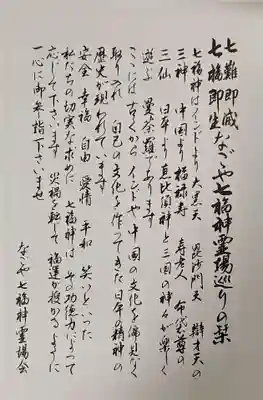 七難即滅
七福即生
なごや七福神霊場巡りの栞
七福神はインドより大黒天 毘沙門天 辯才天の
三神 中国より福禄寿 寿老人 布袋尊の
三仙 日本より恵比国神と三国の神々が楽しく
遊ぶ 曼荼羅であります
ここには古くからインドや中国の文化を偏見なく
取り入れ 自己の文化を作ってきた日本の精神の
歴史が現われています
安全 幸福 自由 愛情 平和 笑いといった
私たちの切実な求めに 七福神は その功徳力によって
応じて下さいます 災禍を転じて福運が授かるように
一心に御参拝下さいませ
なごや七福神霊場会